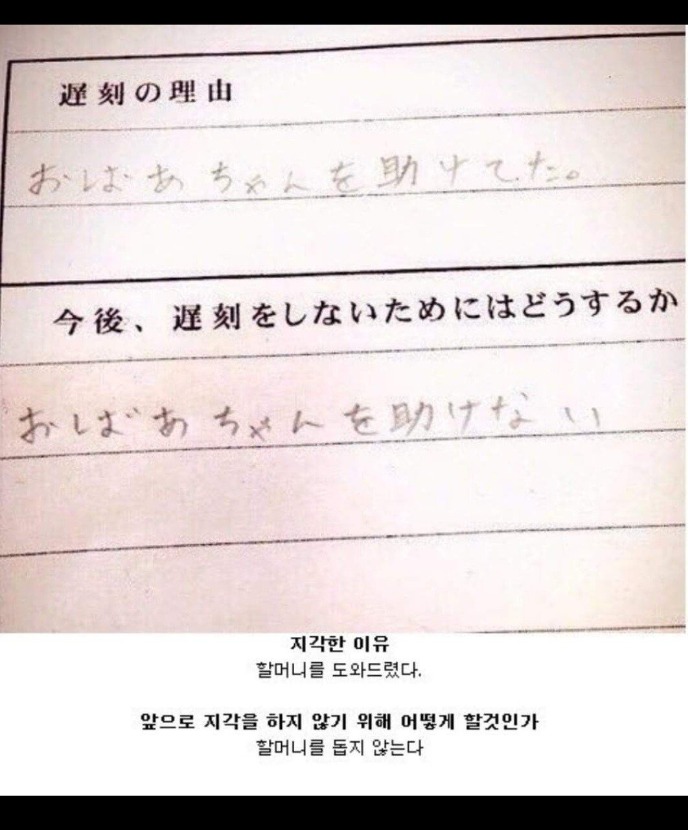 遅刻の理由
おばあちゃんを助けてた。
今後、遅刻をしないためにはどうするか
おばあちゃんを助けない
지각한 이유
할머니를 도와드렸다.
앞으로 지각을 하지 않기 위해 어떻게 할것인가
할머니를 돕지 않는다